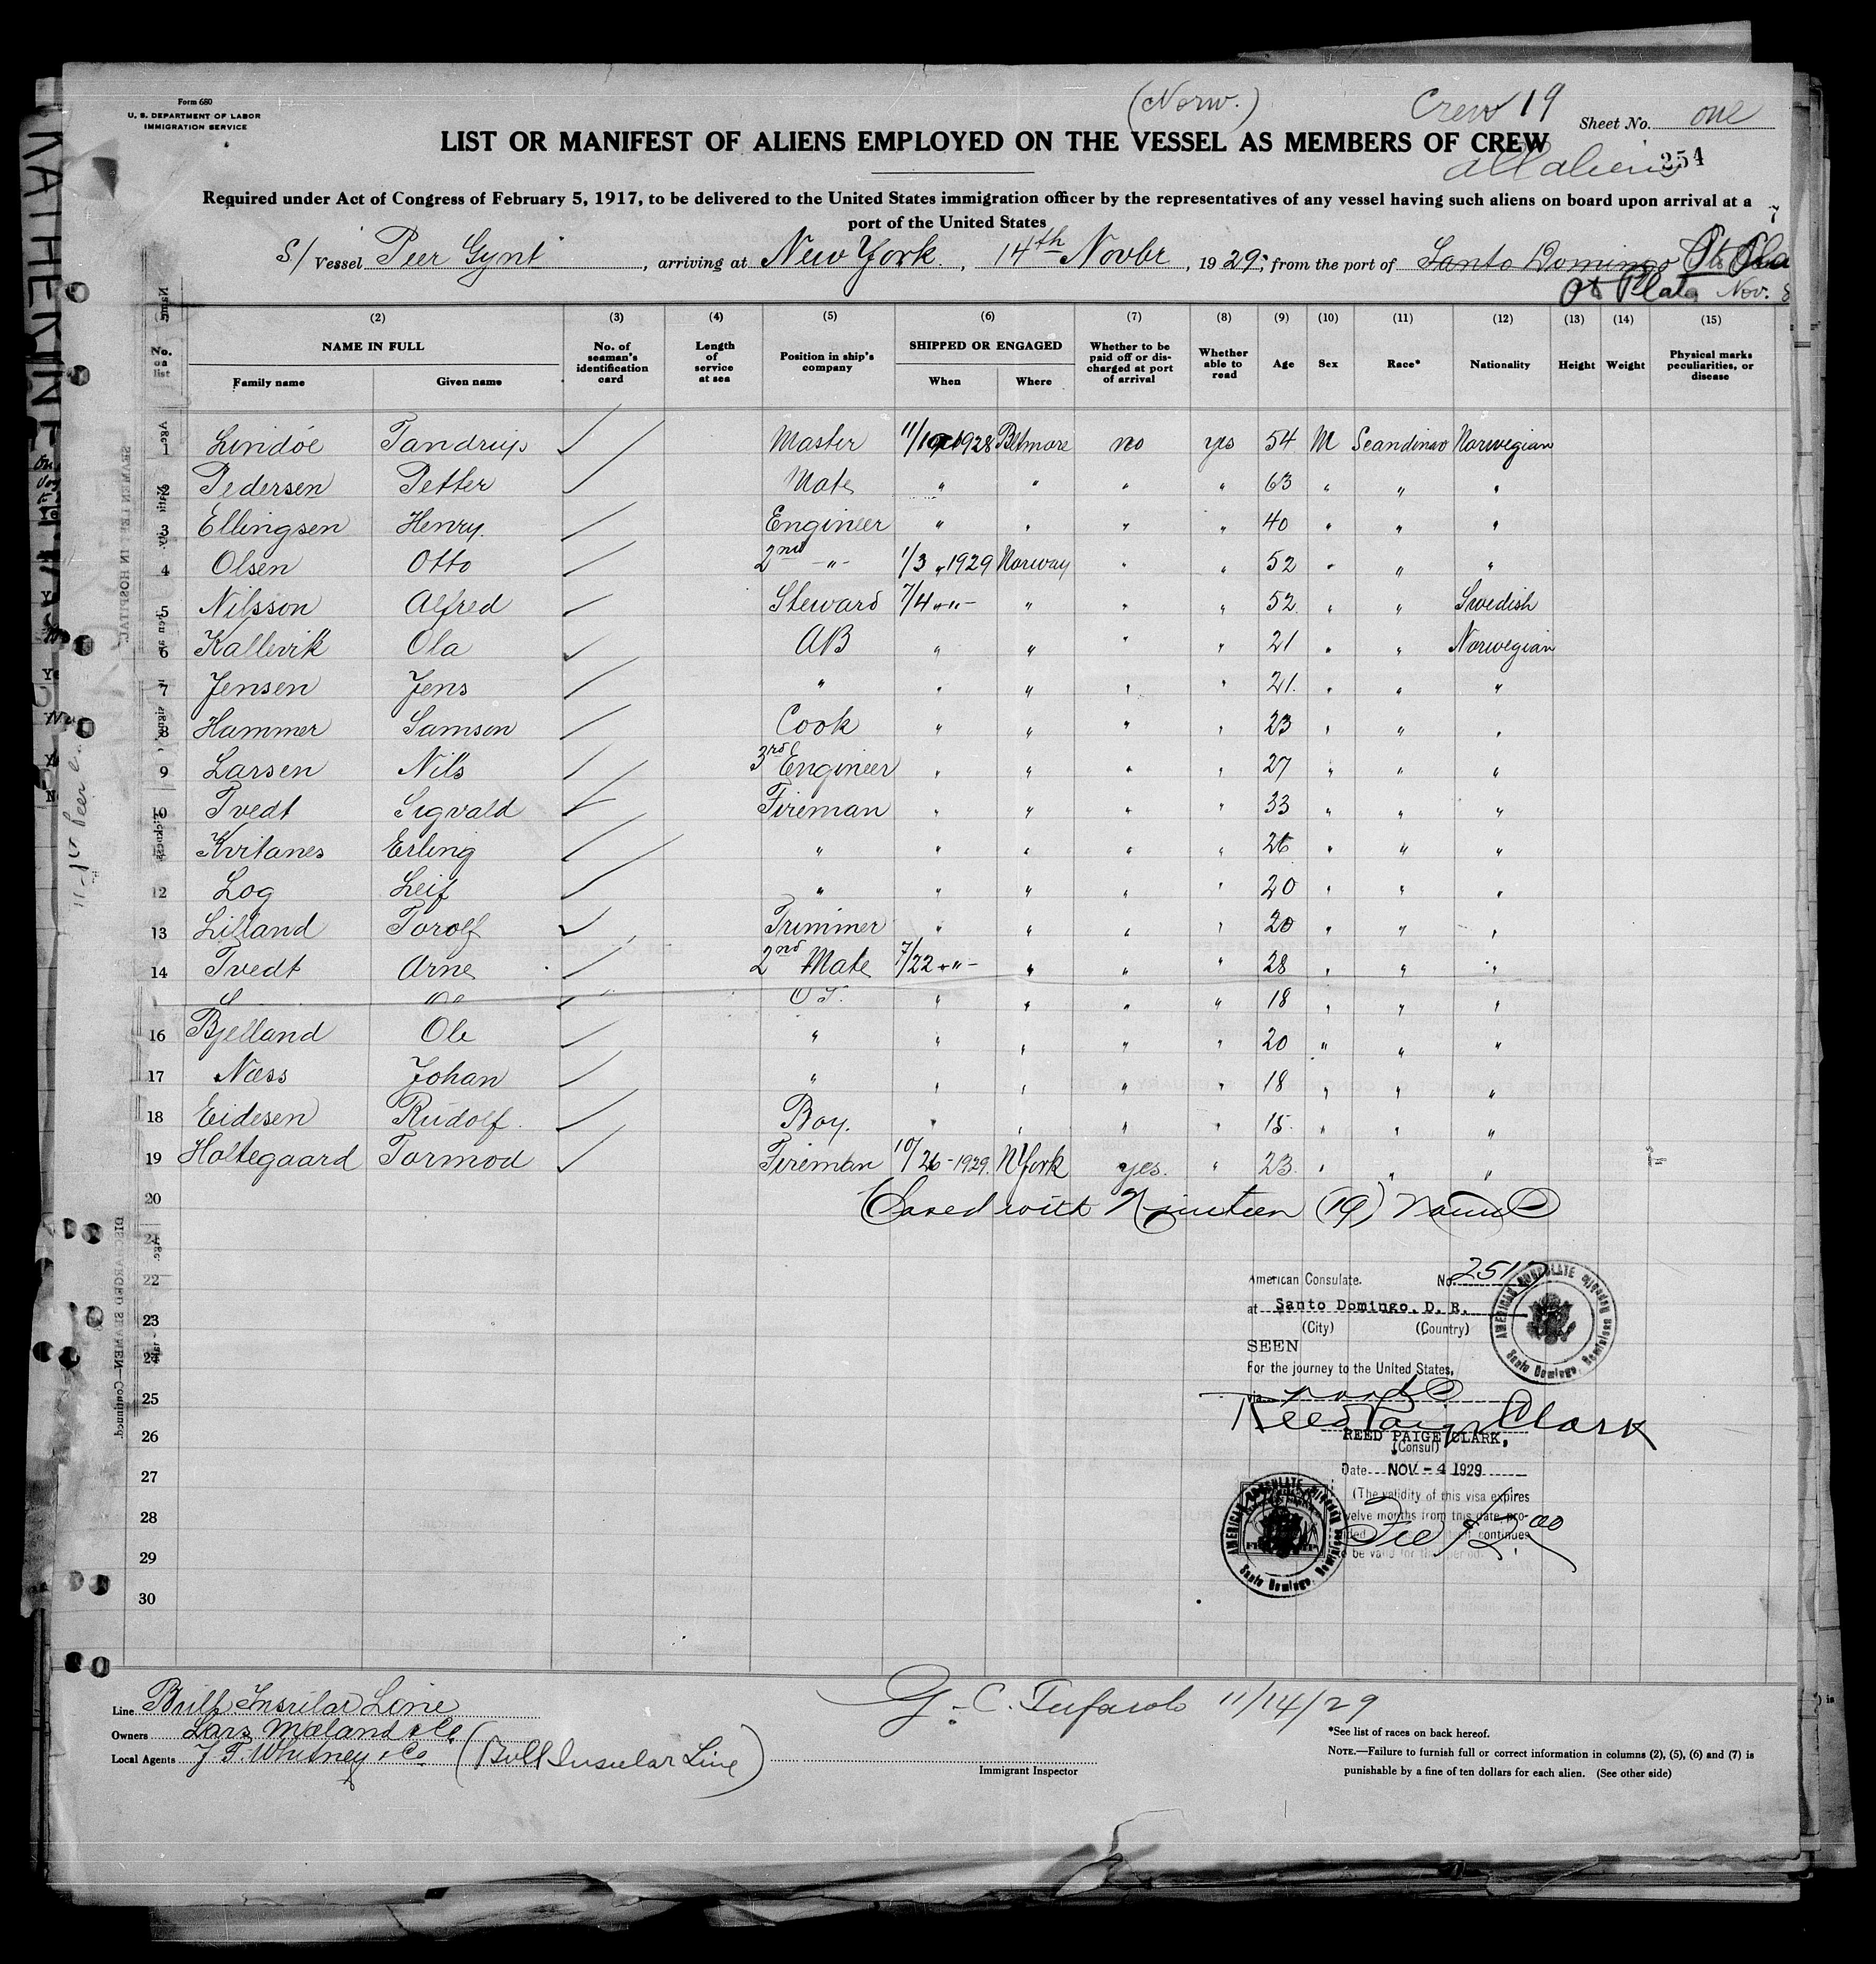 Form 680
U. S. DEPARTMENT OF LABOR
IMMIGRATION SERVICE
(Norw.)
Crew 19
Sheet No. one
LIST OR MANIFEST OF ALIENS EMPLOYED ON THE VESSEL AS MEMBERS OF CREW
all aliens
254
Required under Act of Congress of February 5, 1917, to be delivered to the United States immigration officer by the representatives of any vessel having such aliens on board upon arrival at a
port of the United States
S/ Vessel Peer Gynt, arriving at New York, 14th Novbr, 1929, from the port of Santo Domingo
Pt Plata Nov. 8
(2) (3) (4) (5) (6) (7) (8) (9) (10) (11) (12) (13) (14) (15)
No. on list
NAME IN FULL
Family name
Given name
No. of seaman's identification card
Length of service at sea
Position in ship's company
SHIPPED OR ENGAGED
When
Where
Whether to be paid off or discharged at port of arrival
Whether able to read
Age
Sex
Race*
Nationality
Height
Weight
Physical marks peculiarities, or disease
1 Lindöe Tandrup Master 1928 Baltmore no yes 54 M Scandinav Norwegian
2 Pedersen Petter Mate " " " " 63 " " "
3 Ellingsen Henry. Engineer " " " " 40 " " "
4 Olsen Otto 2nd -"- 1/3 " 1929 Norway " " 52 " " "
5 Nilsson Alfred Steward 7/4 -"- " " " 52 " " Swedish
6 Kallevik Ola AB " " " " 21 " " Norwegian
7 Jensen Jens " " " " " 21. " " "
8 Hammer Samson Cook " " " " 23 " " "
9 Larsen Nils 3rd Engineer " " " " 27 " " "
10 Tvedt Sigvald Fireman " " " " 33 " " "
Kvitanes Erling " " " " " 26 " " "
12 Log Leif " " " " " 20 " " "
13 Lilland Torolf Trimmer " " " " 20 " " "
14 Tvedt Arne 2nd Mate 7/22 -"- " " " 28 " " "
O S. " " " " 18 " " "
16 Bjelland Ole " " " " " 20 " " "
17 Næss Johan " " " " " 18 " " "
18 Eidesen Rudolf Boy. " " " " 15 " " "
19 Holtegaard Tormod Fireman 10/26-1929. N York yes. " 23. " " "
20 Closed with Nineteen (19) names
21
22
23
24
25
26
27
28
29
30
American Consulate. No. 2511
at Santo Domingo, D. R.
(City) (Country)
SEEN
For the journey to the United States,
via
Reed Paige Clark
REED PAIGE CLARK,
(Consul)
Date NOV - 4 1929
(The validity of this visa expires
twelve months from this date, pro-
continues
be valid for the period.
Fee $2.00
AMERICAN CONSULATE
Santo Domingo, Dominican Republic
AMERICAN CONSULATE
Santo Domingo, Dominican
Line Bull Insular Line
Owners Lars Mæland & Co
Local Agents J F. Whitney & Co (Bull Insular Line)
11/14/29
Immigrant Inspector
*See list of races on back hereof.
NOTE.—Failure to furnish full or correct information in columns (2), (5), (6) and (7) is
punishable by a fine of ten dollars for each alien. (See other side)
KATHERINE